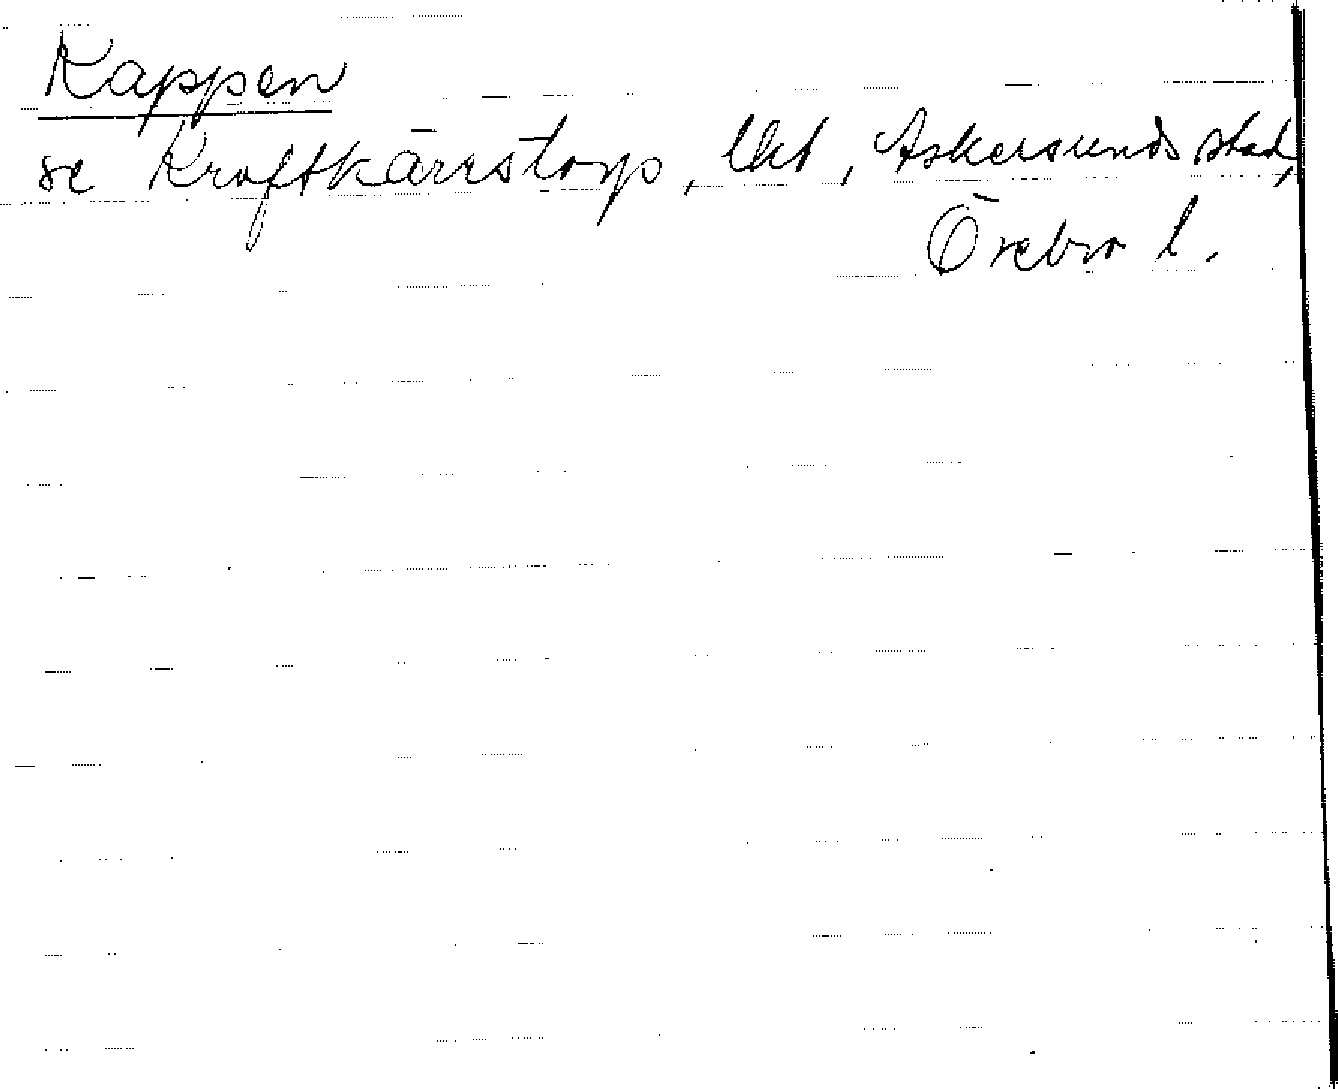 Kappen
se Kraftkärrstorp, lht, Askersunds stad,
Örebro l.